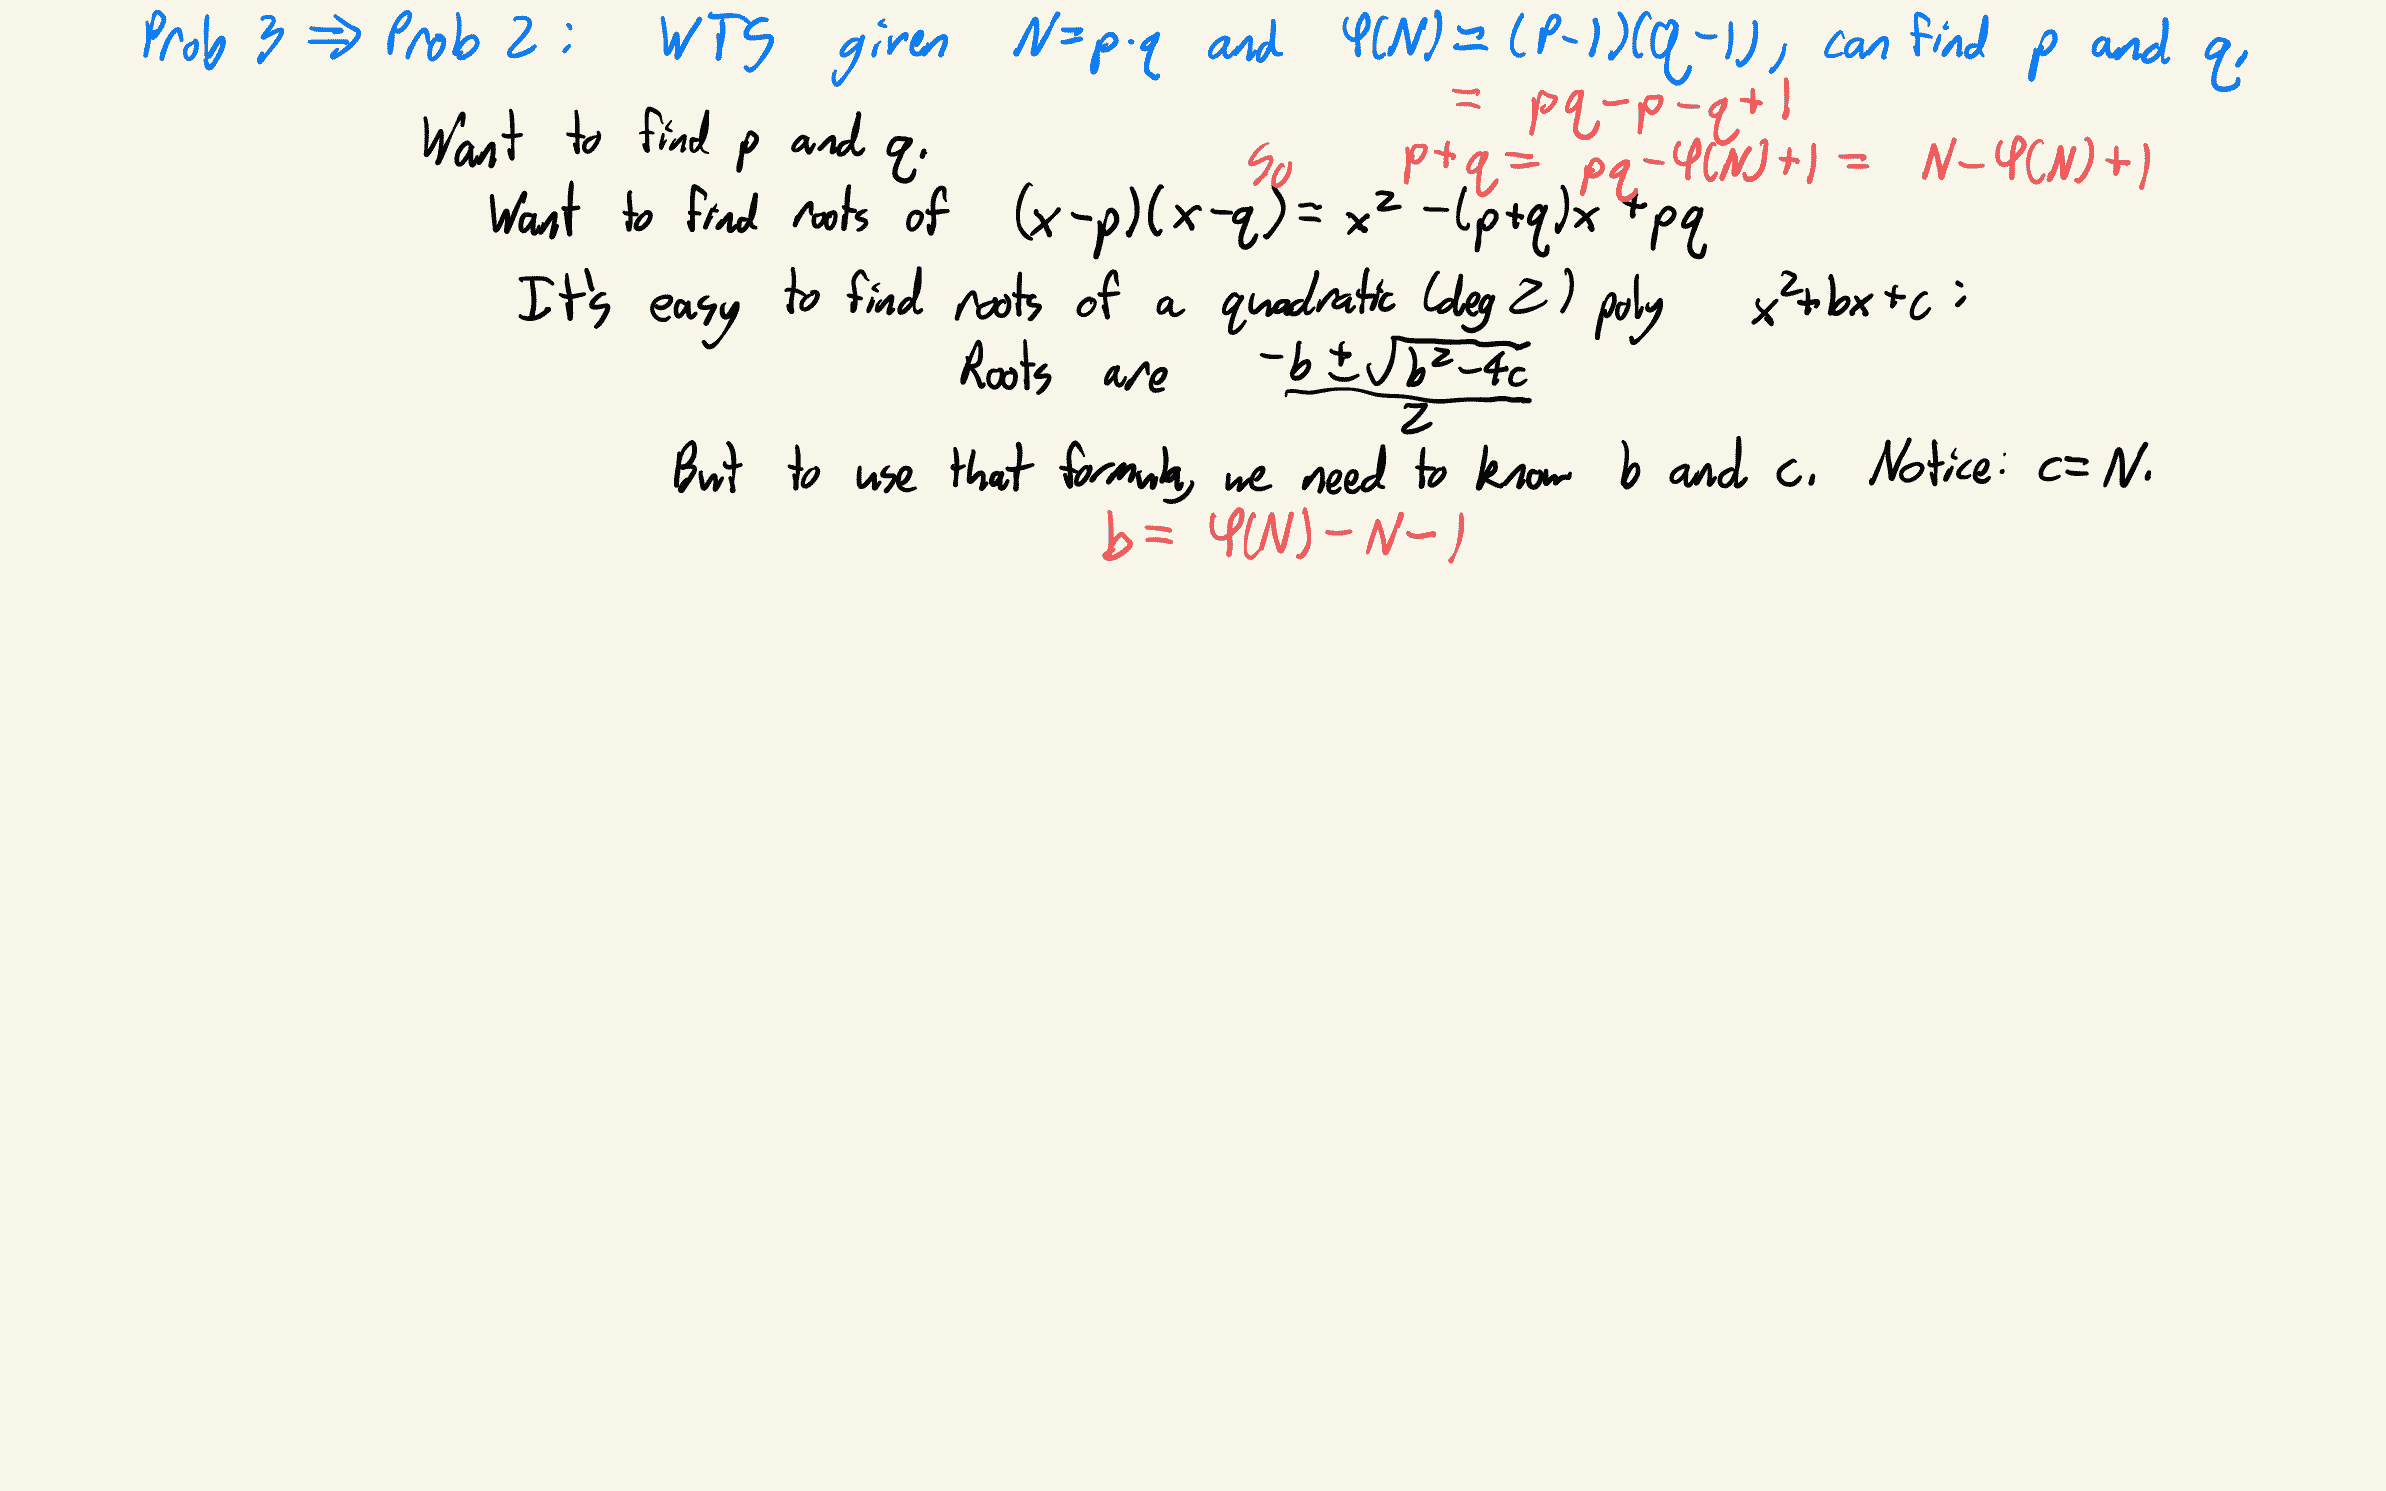 Prob 3 ⇒ Prob 2: WTS given N=p·q and φ(N)=(p-1)(q-1), can find p and q.
= pq-p-q+1
Want to find p and q.
so p+q = pq-φ(N)+1 = N-φ(N)+1
Want to find roots of (x-p)(x-q)= x²-(p+q)x+pq
It's easy to find roots of a quadratic (deg 2) poly x²+bx+c:
Roots are (-b ± √(b²-4c))/2
But to use that formula, we need to know b and c. Notice: c=N.
b= φ(N)-N-1